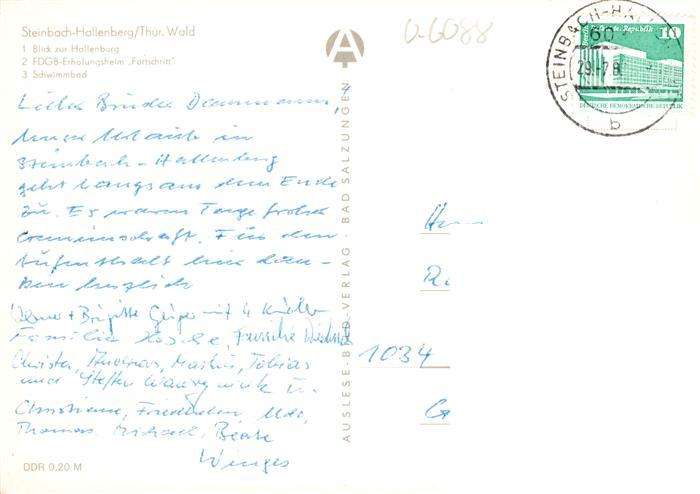 Steinbach-Hallenberg/Thür. Wald
1 Blick zur Hallenburg
2 FDGB-Erholungsheim „Fortschritt"
3 Schwimmbad
U-6088
STEINBACH-HAL
60
29.-7.8
b
der Republik
10
DEUTSCHE DEMOKRATISCHE REPUBLIK
Lieber Bruder Dammann,
unser Urlaub in
Steinbach-Hallenberg
geht langsam dem Ende
zu. Es waren Tage froher
Gemeinschaft. Für den
Aufenthalt hier dan-
ken herzlich
+ Brigitte Geiper mit 4 Kindern
Familie
Christa, Andreas, Martin, Tobias
und Steffen u.
Christiane, Friedhelm, Udo,
Thomas, Michael, Beate
Winges
AUSLESE-BILD-VERLAG · BAD SALZUNGEN
1034
DDR 0,20 M